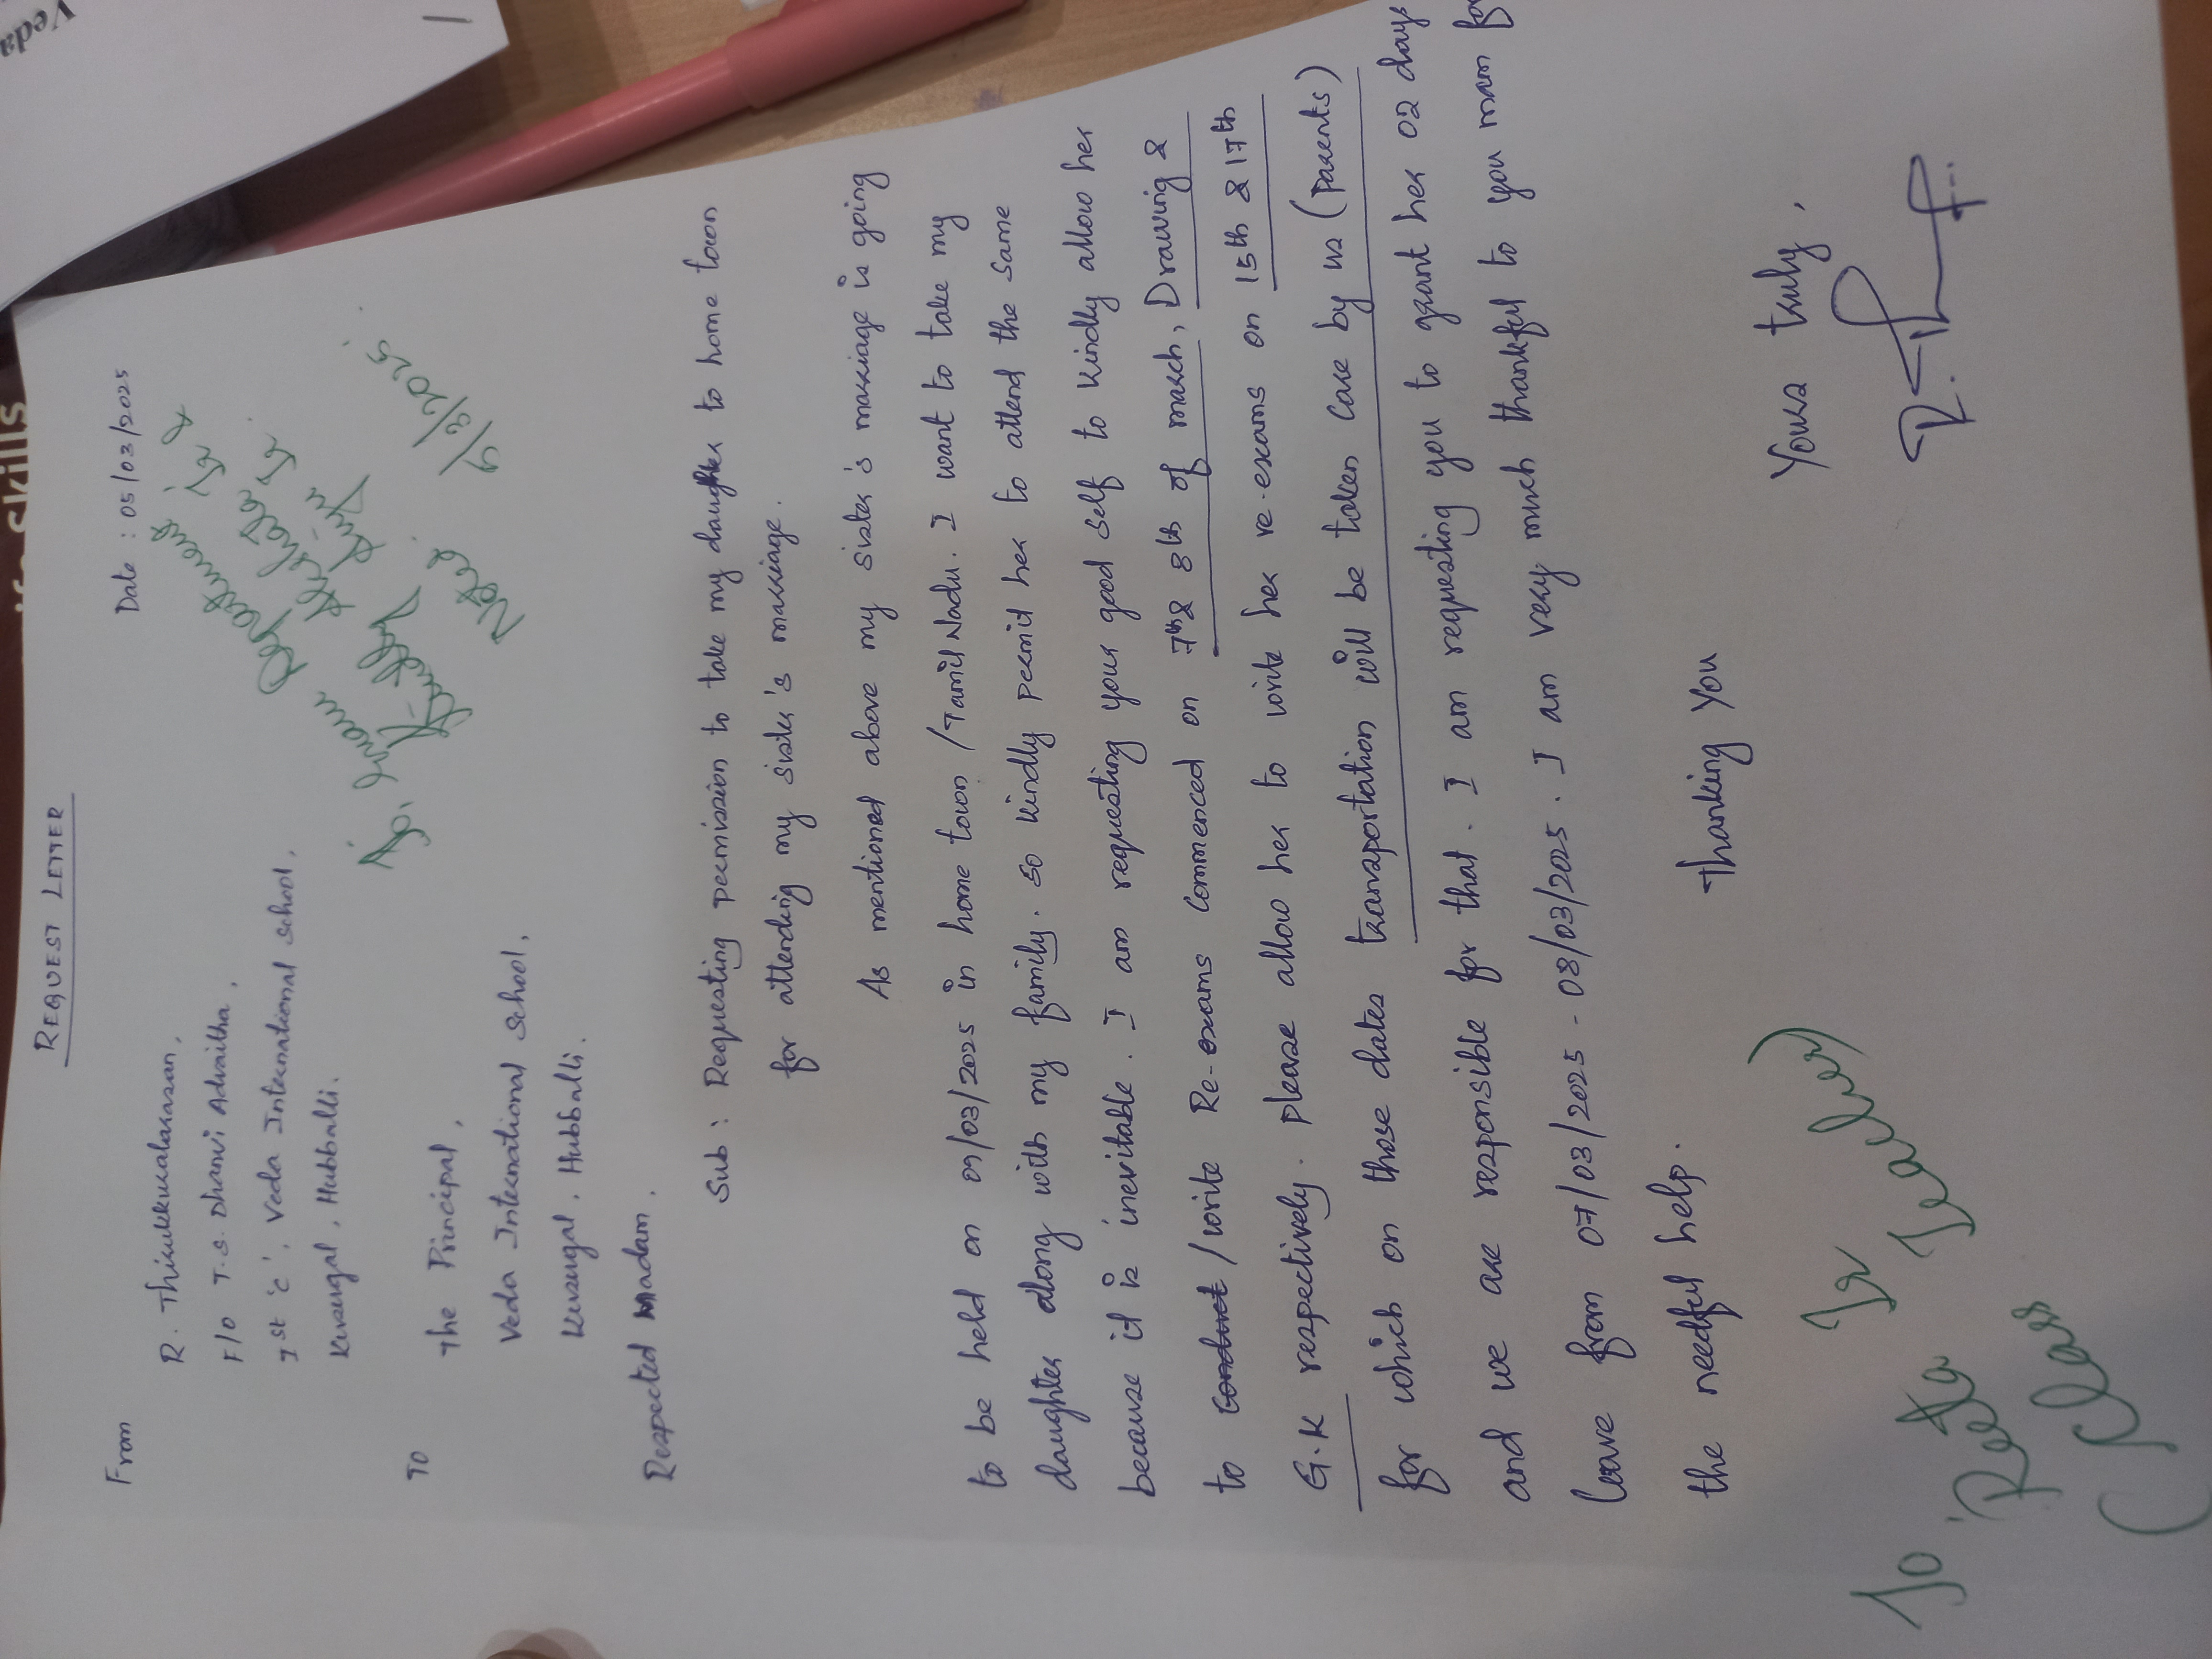 Veda
REQUEST LETTER
Date : 05/03/2025
From
R. Thirukkumalarasan,
F/O T.S. Dhanvi Advaitha,
Ist 'C', Veda International School,
Kusugal, Hubballi.
To
The Principal,
Veda International School,
Kusugal, Hubballi.
Noted
6/3/2025
Respected Madam,
Sub : Requesting permission to take my daughter to home town
for attending my sister's marriage.
As mentioned above my sister's marriage is going
to be held on 09/03/2025 in home town /Tamil Nadu. I want to take my
daughter along with my family. so kindly permit her to attend the same
because it is inevitable. I am requesting your good self to kindly allow her
to conduct /write Re-exams commenced on 7th & 8th of march, Drawing &
G.K respectively. please allow her to write her re-exams on 15th & 17th
for which on those dates transportation will be taken care by us (parents)
and we are responsible for that. I am requesting you to grant her 02 days
leave from 07/03/2025 - 08/03/2025. I am very much thankful to you mam for
the needful help.
Thanking You
Yours truly,
To
(Class Teacher)